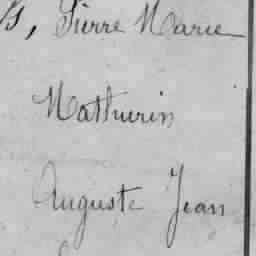 Pierre Marie
Mathurin
Auguste Jean